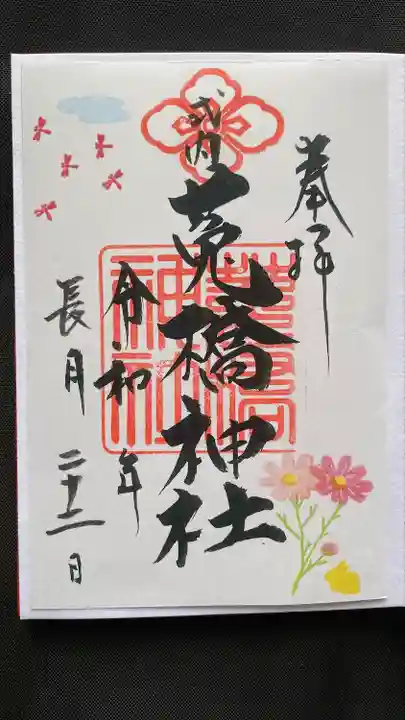 奉拝
式内
莵橋神社
令和 年
長月 二十二日